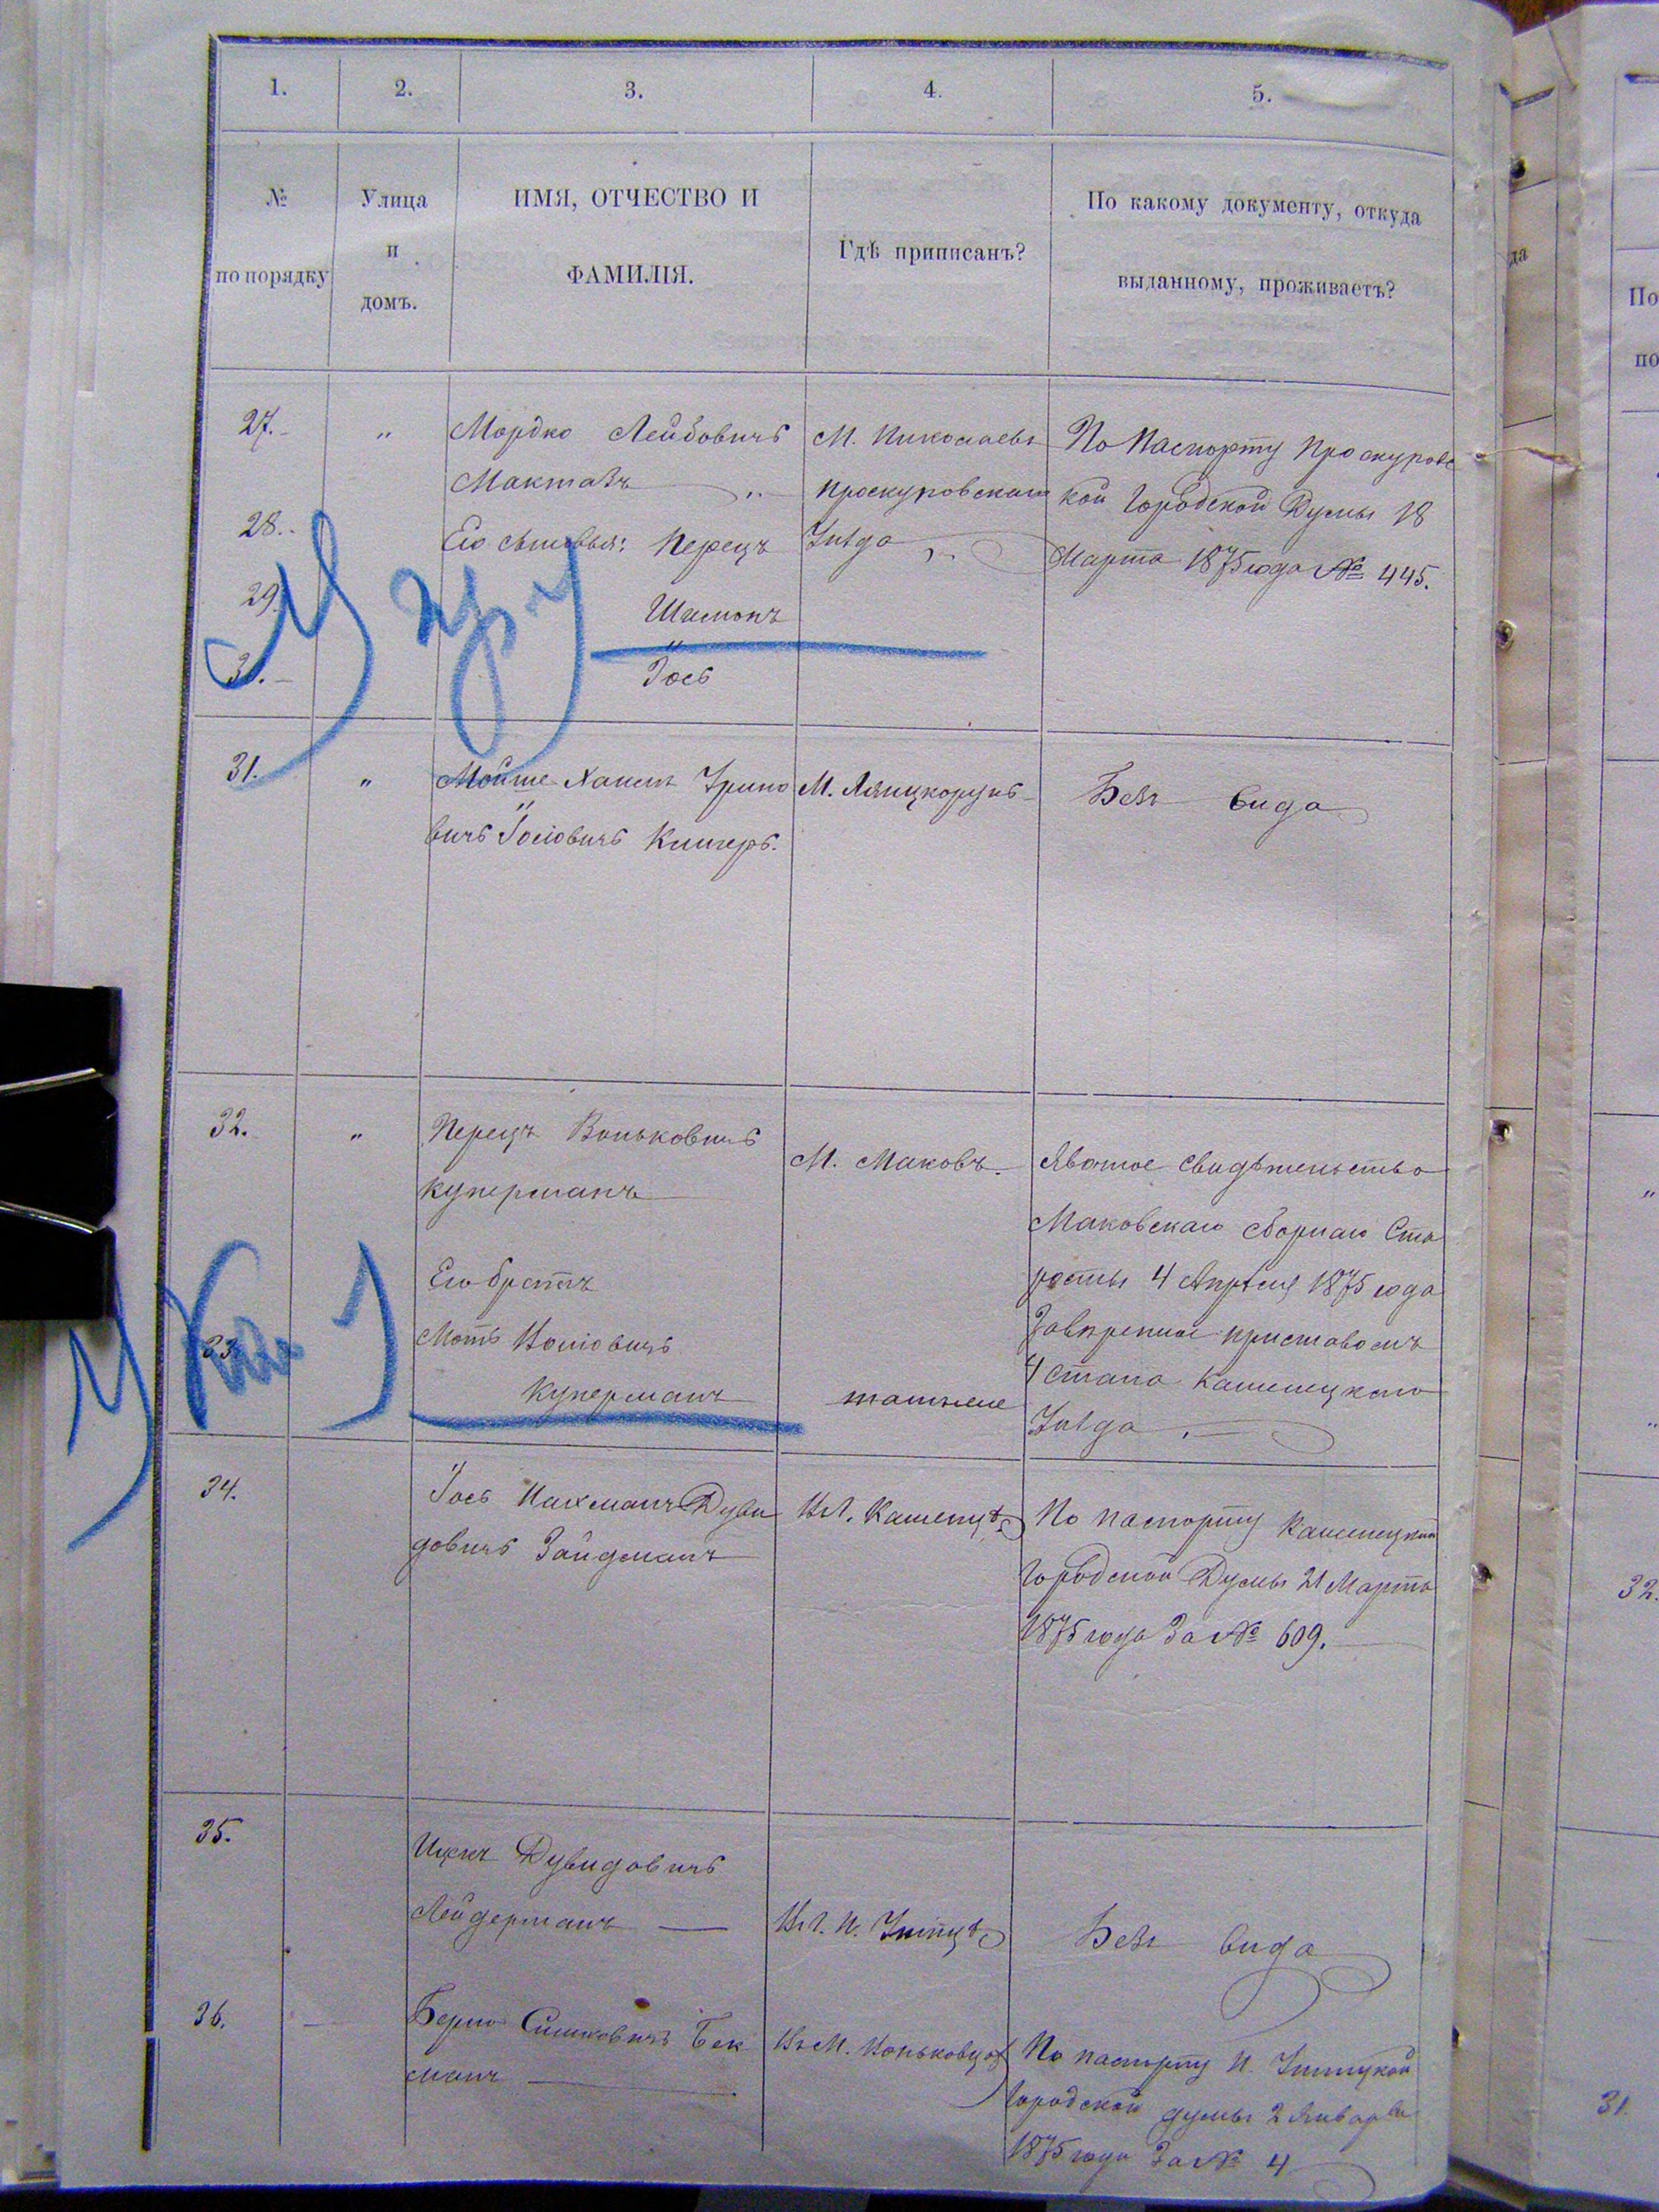 1. 2. 3. 4. 5.
№ по порядку
Улица и домъ.
ИМЯ, ОТЧЕСТВО И
ФАМИЛІЯ.
Гдѣ приписанъ?
По какому документу, откуда
выданному, проживаетъ?
27. " Мордко Лейбовичъ М. Николаевъ По паспорту Проскуровс
Макмазъ " Проскуровскаго кой Городской Думы 18
28. Его сыновья: Перецъ Уѣзда Марта 1875 года № 445.
29. Шимонъ
30. Іось
31. " Мойше Хаимъ М. Лянцкорунь Безъ вида
вичъ Іосіовичъ
32. " Перецъ Воньковичъ
М. Маковъ. Явочное свидѣтельство
Куперманъ
Маковскаго сборнаго Ста
Его братъ
росты 4 Апрѣля 1875 года
33. Моть
приставомъ
Куперманъ тамже
4 стана Каменецкаго
Уѣзда
34. Іось Нахманъ Дуви Каменцѣ По паспорту Каменецкой
довичъ Зайдманъ
Городской Думы 21 Марта
1875 года За № 609.
35. Ицекъ Дувидовичъ
Лейдерманъ — Н. Ушицѣ Безъ вида
36. Берко Симковичъ Бек Въ М. Вонько По паспорту Н. Ушицкой
манъ
Городской думы 2 Января
1875 года За № 4
да
По
по
"
32.
31